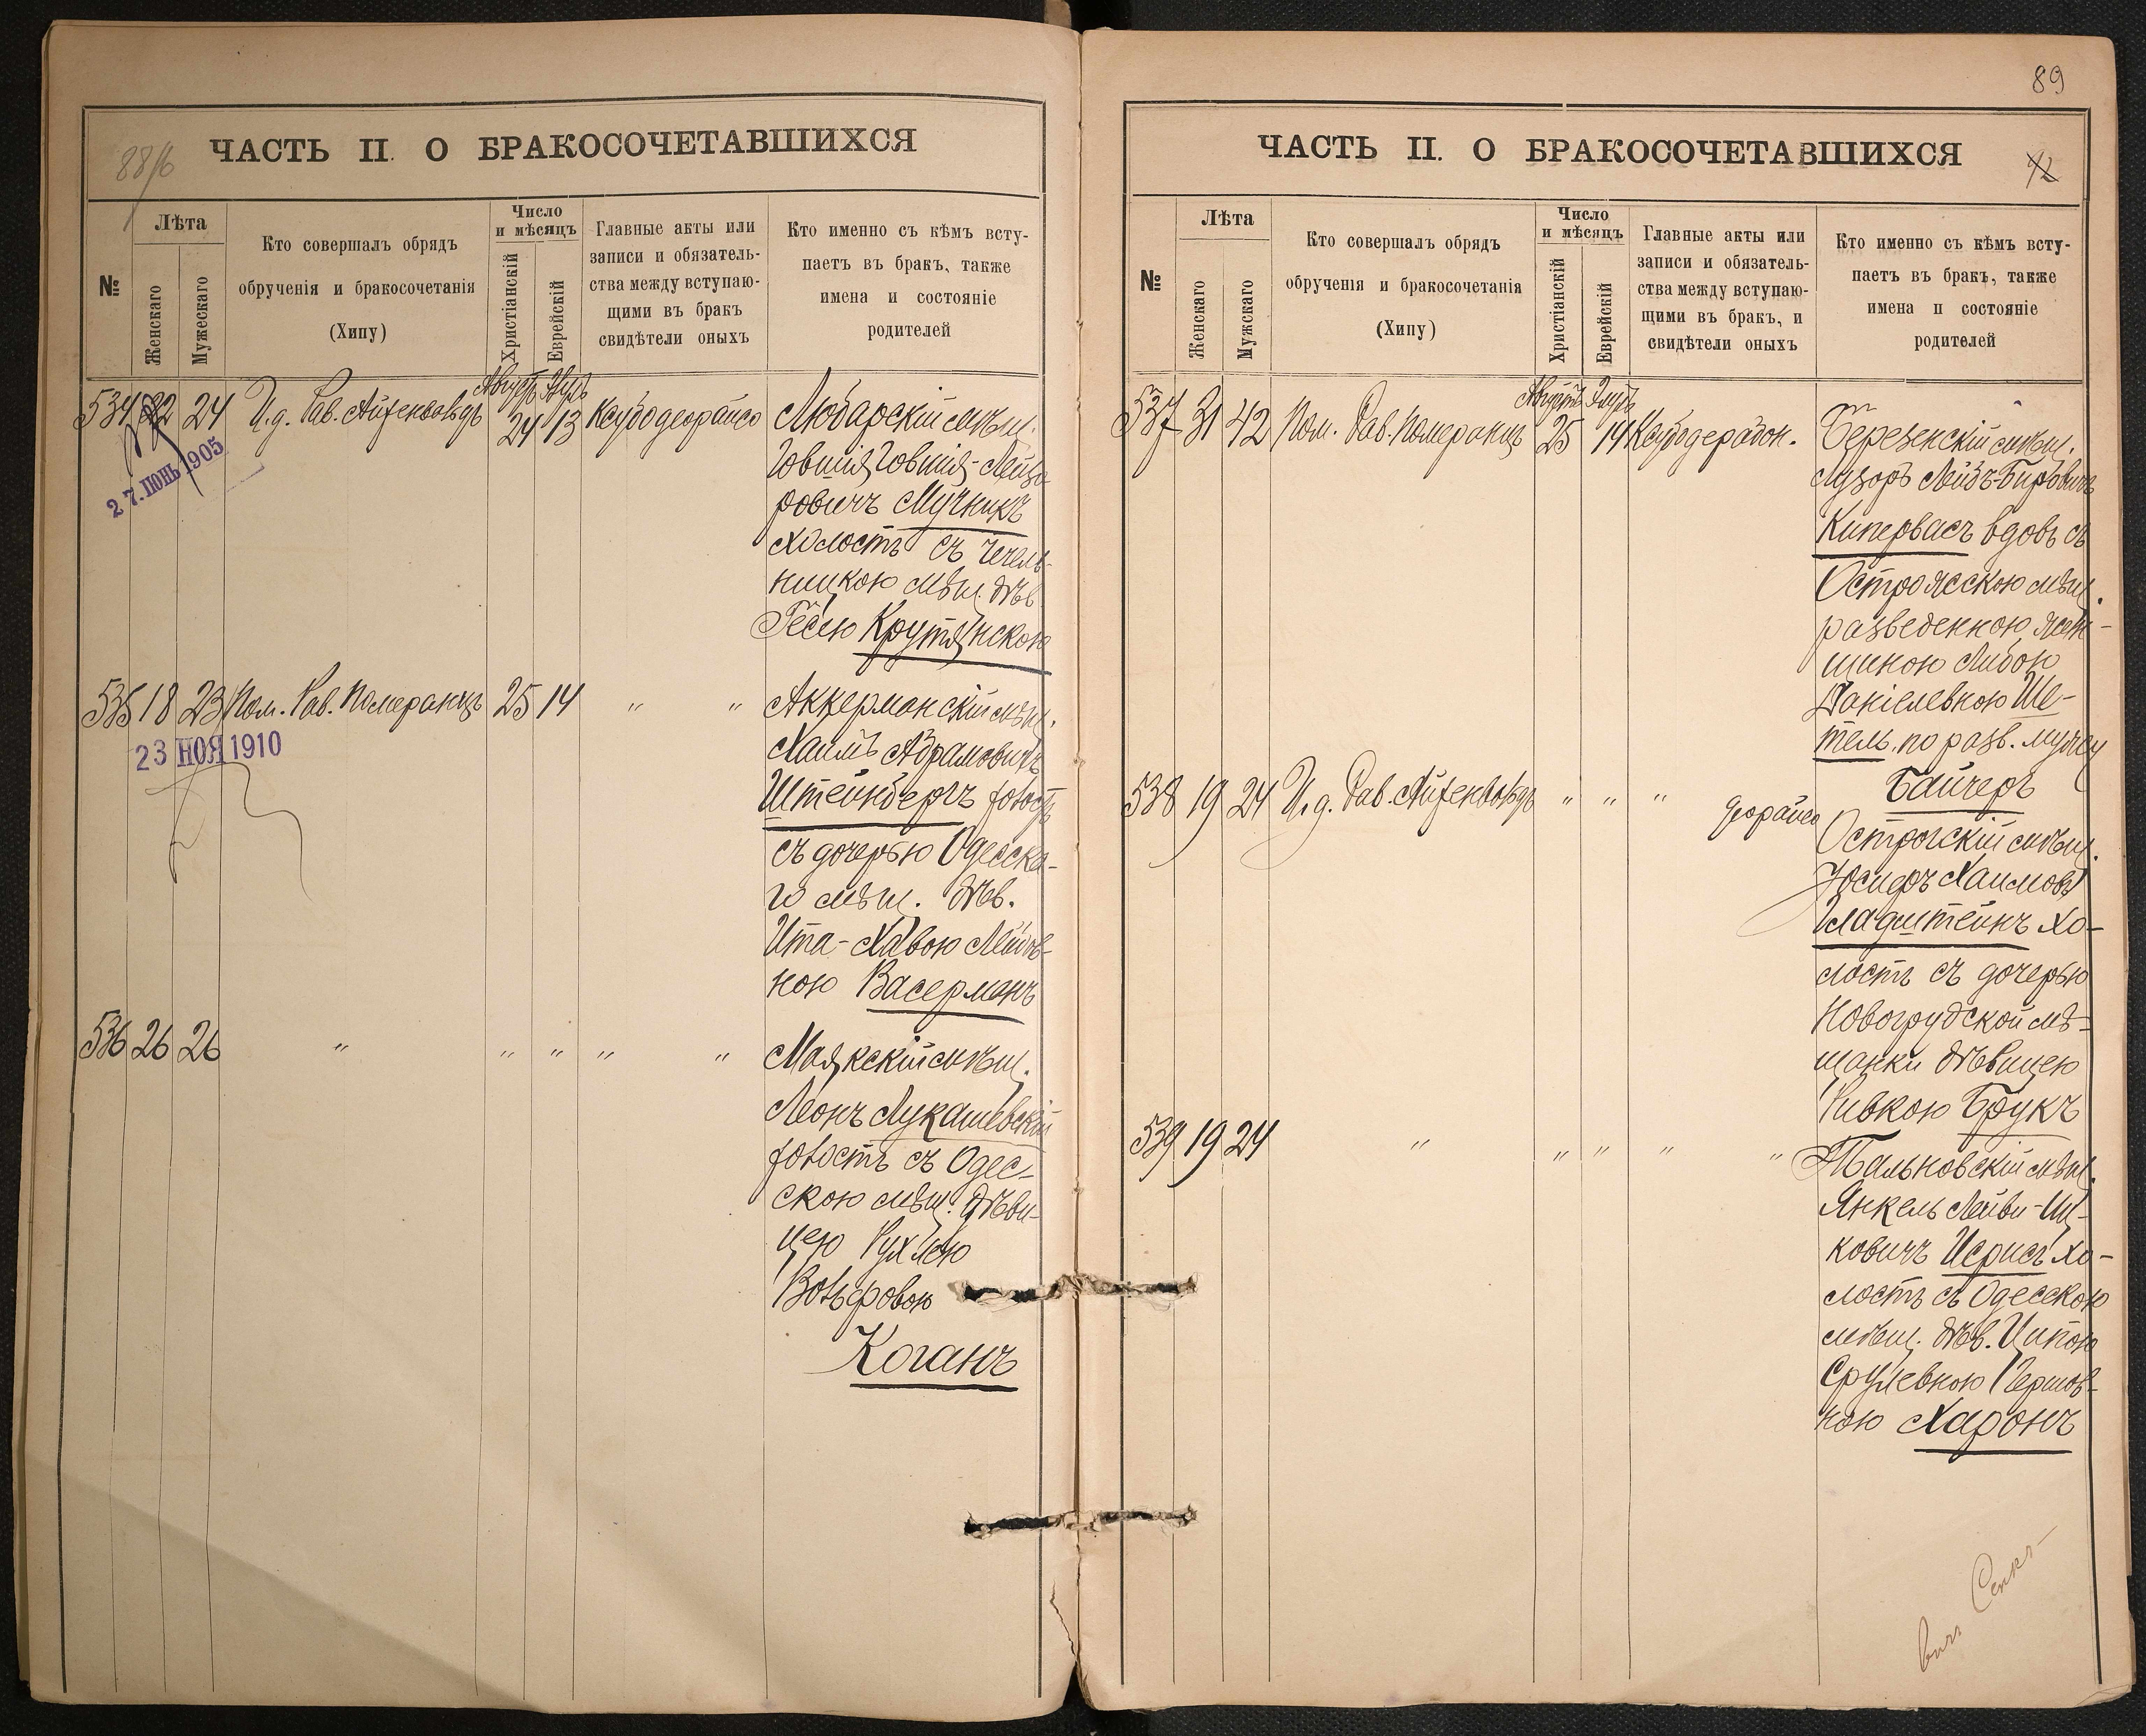 88/б
ЧАСТЬ II. О БРАКОСОЧЕТАВШИХСЯ
№
Лѣта
Женскаго
Мужескаго
Кто совершалъ обрядъ
обрученія и бракосочетанія
(Хипу)
Число
и мѣсяцъ
Христіанскій
Еврейскій
Главные акты или
записи и обязатель-
ства между вступаю-
щими въ бракъ
свидѣтели оныхъ
Кто именно съ кѣмъ всту-
паетъ въ бракъ, также
имена и состояніе
родителей
Августъ
534 22 24 И.д. Рав. Айзенвальдъ 24 13 Любарскій мѣщ.
27. ІЮНЬ 1905
Говшія Говшія-Лейзе
ровичъ Мучникъ
холостъ съ Чечель-
ницкою мѣщ. дѣв
Гесею Крутянскою
535 18 23 Пом. Рав. Померанцъ 25 14 " " Аккерманскій мѣщ.
23 НОЯ 1910
Хаимъ Абрамовичъ
Штейнбергъ холостъ
съ дочерью Одесска-
го мѣщ. дѣв.
Ита-Хавою Лейзов-
ною Васерманъ
536 26 26 " " " " " Маякскій мѣщ.
Леонъ Лукашевскій
холостъ съ Одес-
скою мѣщ. дѣви-
цею Рухлею
Вольфовою
Коганъ
89
ЧАСТЬ II. О БРАКОСОЧЕТАВШИХСЯ
42
№
Лѣта
Женскаго
Мужскаго
Кто совершалъ обрядъ
обрученія и бракосочетанія
(Хипу)
Число
и мѣсяцъ
Христіанскій
Еврейскій
Главные акты или
записи и обязатель-
ства между вступаю-
щими въ бракъ, и
свидѣтели оныхъ
Кто именно съ кѣмъ всту-
паетъ въ бракъ, также
имена и состояніе
родителей
Августъ Элулъ
537 31 42 Пом. Рав. Померанцъ 25 14 Березенскій мѣщ.
Лузоръ Лейзъ-Беровичъ
Кипервасъ вдовъ съ
мѣщ.
разведенною жен-
щиною Либою
Даніелевною Ше-
тель, по разв. мужу
Байчеръ
538 19 24 И.д. Рав. Айзенвальдъ " " "
Острогскій мѣщ.
Юсифъ Хаимовъ
Гладштейнъ хо-
лостъ съ дочерью
Новогрудской мѣ-
щанки дѣвицею
Ривкою Брукъ
539 19 24 " " " " " Тальновскій мѣщ.
Янкель Лейви-Иц-
ковичъ Исрисъ хо-
лостъ съ Одесскою
мѣщ. дѣв. Ципою
Срулевною Гершов-
ною Харонъ